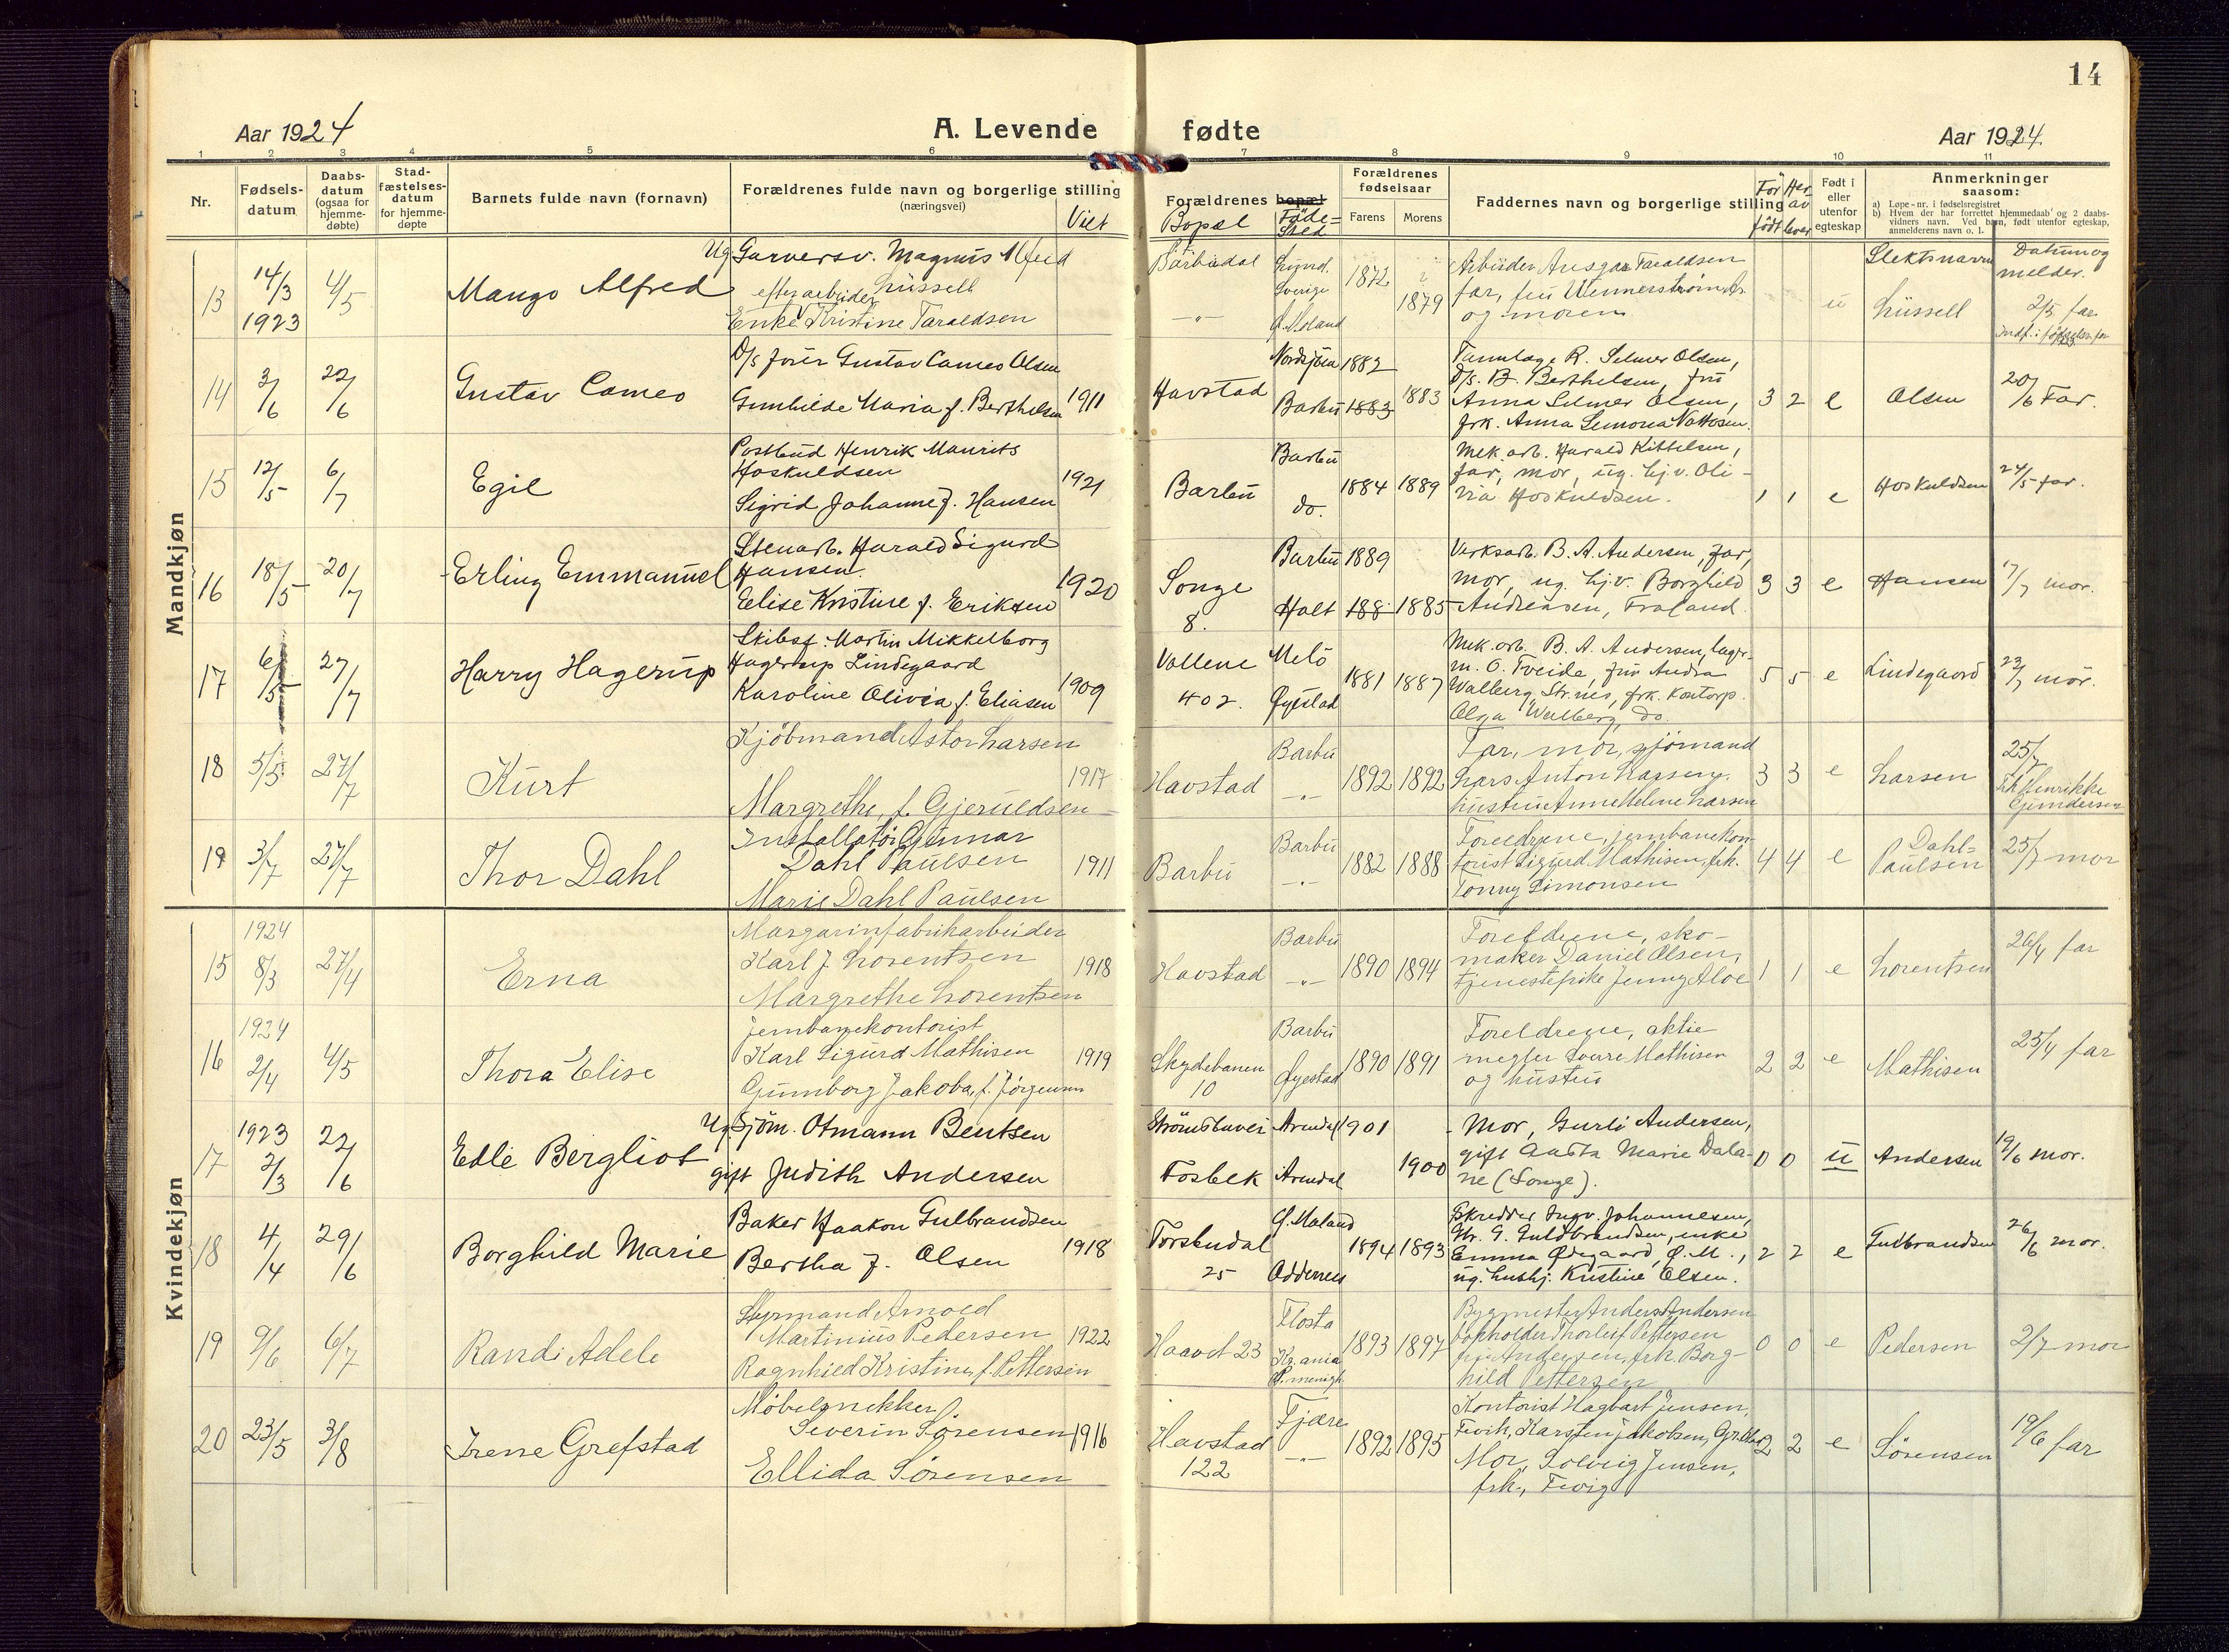 14
Aar 1924
A. Levende fødte
Aar 1924
1 2 3 4 5 6 7 8 9 10 11
Nr.
Fødsels-
datum
Daabs-
datum
(ogsaa for
hjemme-
døbte)
Stad-
fæstelses-
datum
for hjemme-
døpte
Barnets fulde navn (fornavn)
Forældrenes fulde navn og borgerlige stilling
(næringsvei)
Viet
Forældrenes bopæl
Bopæl
Føde-
sted
Forældrenes
fødselsaar
Farens
Morens
Faddernes navn og borgerlige stilling
Før
født
Her-
av
lever
Født i
eller
utenfor
egteskap
Anmerkninger
saasom:
a) Løpe-nr. i fødselsregistret
b) Hvem der har forrettet hjemmedaab og 2 daabs-
vidners navn. Ved barn, født utenfor egteskap,
anmelderens navn o. l.
Slektsnavn
Datum og
melder.
Mandkjøn
13
14/3
1923
4/5
Mango Alfred
Ug. Garversv. Magnus Alfred
Hüssell
efter arbeider
Enke Kristine Taraldsen
Barbudal
Lund.
Sverige
Ø. Moland
1872
1879
Arbeider Ansgar Taraldsen
far, fru Wennerstrøm
og moren
u
Hüssell
2/5 far
14
3/6
22/6
Gustav Cameo
D/s fører Gustav Cameo Olsen
Gunhilde Maria f. Berthelsen
1911
Havstad
Nordsjøen
Barbu
1882
1883
1883
Tannlæge R. Selmer Olsen,
D/s. B. Berthelsen, fru
Anna Selmer Olsen,
frk. Anna Lemona
3 2 e
Olsen
20/6 Far.
15
12/5
6/7
Egil
Postbud Henrik Maurits
Hoskuldsen
Sigrid Johanne f. Hansen
1921
Barbu
Barbu
do.
1884 1889
Mek. arb. Harald Kittelsen,
far, mor, ug. hj. v. Oli-
via Hoskuldsen.
1 1 e
Hoskuldsen
24/5 far.
16
18/5
20/7
Erling Emmanuel
Stenarb. Harald Sigurd
Hansen.
Elise Kristine f. Eriksen
1920
Songe
8.
Barbu
Holt
1889
188
1885
Verksarb. B. A. Andersen, far,
mor, ug. hj. v. Borghild
Andreasen, Froland.
3 3 e
Hansen
17/7 mor.
17
6/5
27/7
Harry Hagerup
Skibsf. Martin Mikkelborg
Hagerup Lindegaard
Karoline Olivia f. Eliasen
1909
Vollene
402.
Melö
Øyestad
1881 1887
Mek. arb. B. A. Andersen, lager-
m. O. Tveide, fru Andra
Walberg, Str.nes, frk. Kontorp.
Olga Walberg, do.
5 5 e
Lindegaard
23/7 mor.
18
5/5
27/7
Kurt
Kjöbmand Astor Larsen
Margrethe, f. Gjeruldsen
1917
Havstad
Barbu
-"-
1892 1892
Far, mor, sjömand
Lars Anton Larsen,
hustru Anne Helene Larsen
3 3 e
Larsen
25/7
frk. Henrikke
Gundersen
19
3/7
27/7
Thor Dahl
Installatör Gunnar
Dahl Paulsen
Marie Dahl Paulsen
1911
Barbu
Barbu
-"-
1882 1888
Foreldrene, jernbanekon-
torist Sigurd Mathisen, frk.
Tonny Simonsen
4 4 e
Dahl-
Paulsen
25/7 mor
Kvindekjøn
15
1924
8/3
27/4
Erna
Margarinfabrikarbeider
Karl J. Lorentsen
Margrethe Lorentsen
1918
Havstad
Barbu
-"-
1890 1894
Foreldrene, sko-
maker Daniel Olsen,
tjenestepike Jenny Aloe
1 1 e
Lorentsen
26/4 far
16
1924
2/4
4/5
Thora Elise
jernbanekontorist
Karl Sigurd Mathisen
Gunnborg Jakoba, f. Jørgensen
1919
Skydebanen
10
Barbu
Øyestad
1890 1891
Foreldrene, aktie
megler Sverre Mathisen
og hustru
2 2 e
Mathisen
25/4 far
17
1923
2/3
22/6
Edle Bergliot
Ug. Sjöm. Otmann Bentsen
gift Judith Andersen
Strömsbuvei
Fosbek
Arendal
Arendal
1901
1900
Mor, Gurli Andersen,
gift Aasta Marie Dala-
ne (Songe).
0 0 u
Andersen
19/6 mor.
18
4/4
29/6
Borghild Marie
Baker Haakon Gulbrandsen
Bertha f. Olsen
1918
Torskudal
25
Ø. Moland
Oddernes
1894 1893
Skredder Ingv. Johannesen,
Hr. G. Guldbrandsen, enke
Emma Ødegaard, Ø. M.,
ug. hushj. Kristine Olsen.
2 2 e
Gulbrandsen
26/6 mor.
19
9/6
6/7
Randi Adele
Styrmand Arnold
Martinius Pedersen
Ragnhild Kristine, f. Pettersen
1922
Haavet 23
Flosta
Kr.ania
1893 1897
Bygmester Anders Andersen
Thorleif Pettersen
fru Andersen, frk. Borg-
hild Pettersen
0 0 e
Pedersen
2/7 mor
20
23/5
3/8
Irene Grefstad
Möbelsnekker
Severin Sörensen
Ellida Sörensen
1916
Havstad
122
Fjære
-"-
1892 1895
Kontorist Hagbart Jensen,
Fevik, Karsten Jakobsen,
Mor, Solveig Jensen,
frk., Fevig
2 2 e
Sörensen
19/6 far